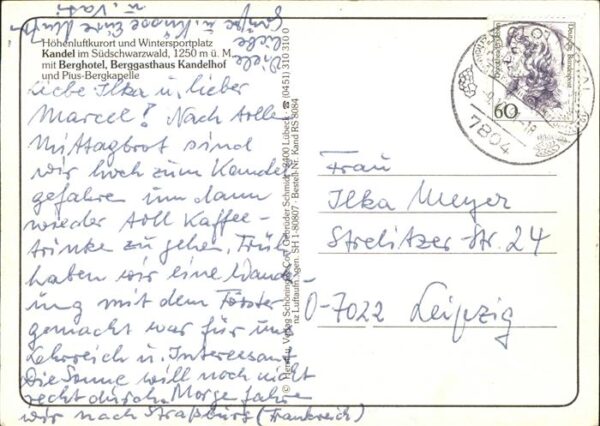 Höhenluftkurort und Wintersportplatz
Kandel im Südschwarzwald, 1250 m ü. M.
mit Berghotel, Berggasthaus Kandelhof
und Pius-Bergkapelle
Liebe Ilka u. lieber
Marcel! Nach tollen
Mittagbrot sind
wir hoch zum Kandel
gefahren um dann
wieder toll Kaffee-
trinke zu gehen. Früh
haben wir eine Wande
ung mit dem Förster
gemacht war für uns
Lehrreich u. Interessant
Die Sonne will noch nicht
recht durch. Morge fahre
wir nach Straßburg (Frankreich)
Viele liebe
Grüße u. Küsse Eure Mutti
u. Vati
© Verlag Schöning & Co + Gebrüder Schmidt, 2400 Lübeck ☎ (0451) 310 310 0
SH 1-80807 · Bestell-Nr. Kand RS 8084
Deutsche Bundespost
60
7804
Frau
Ilka Meyer
Strelitzer-Str. 24
O-7022 Leipzig